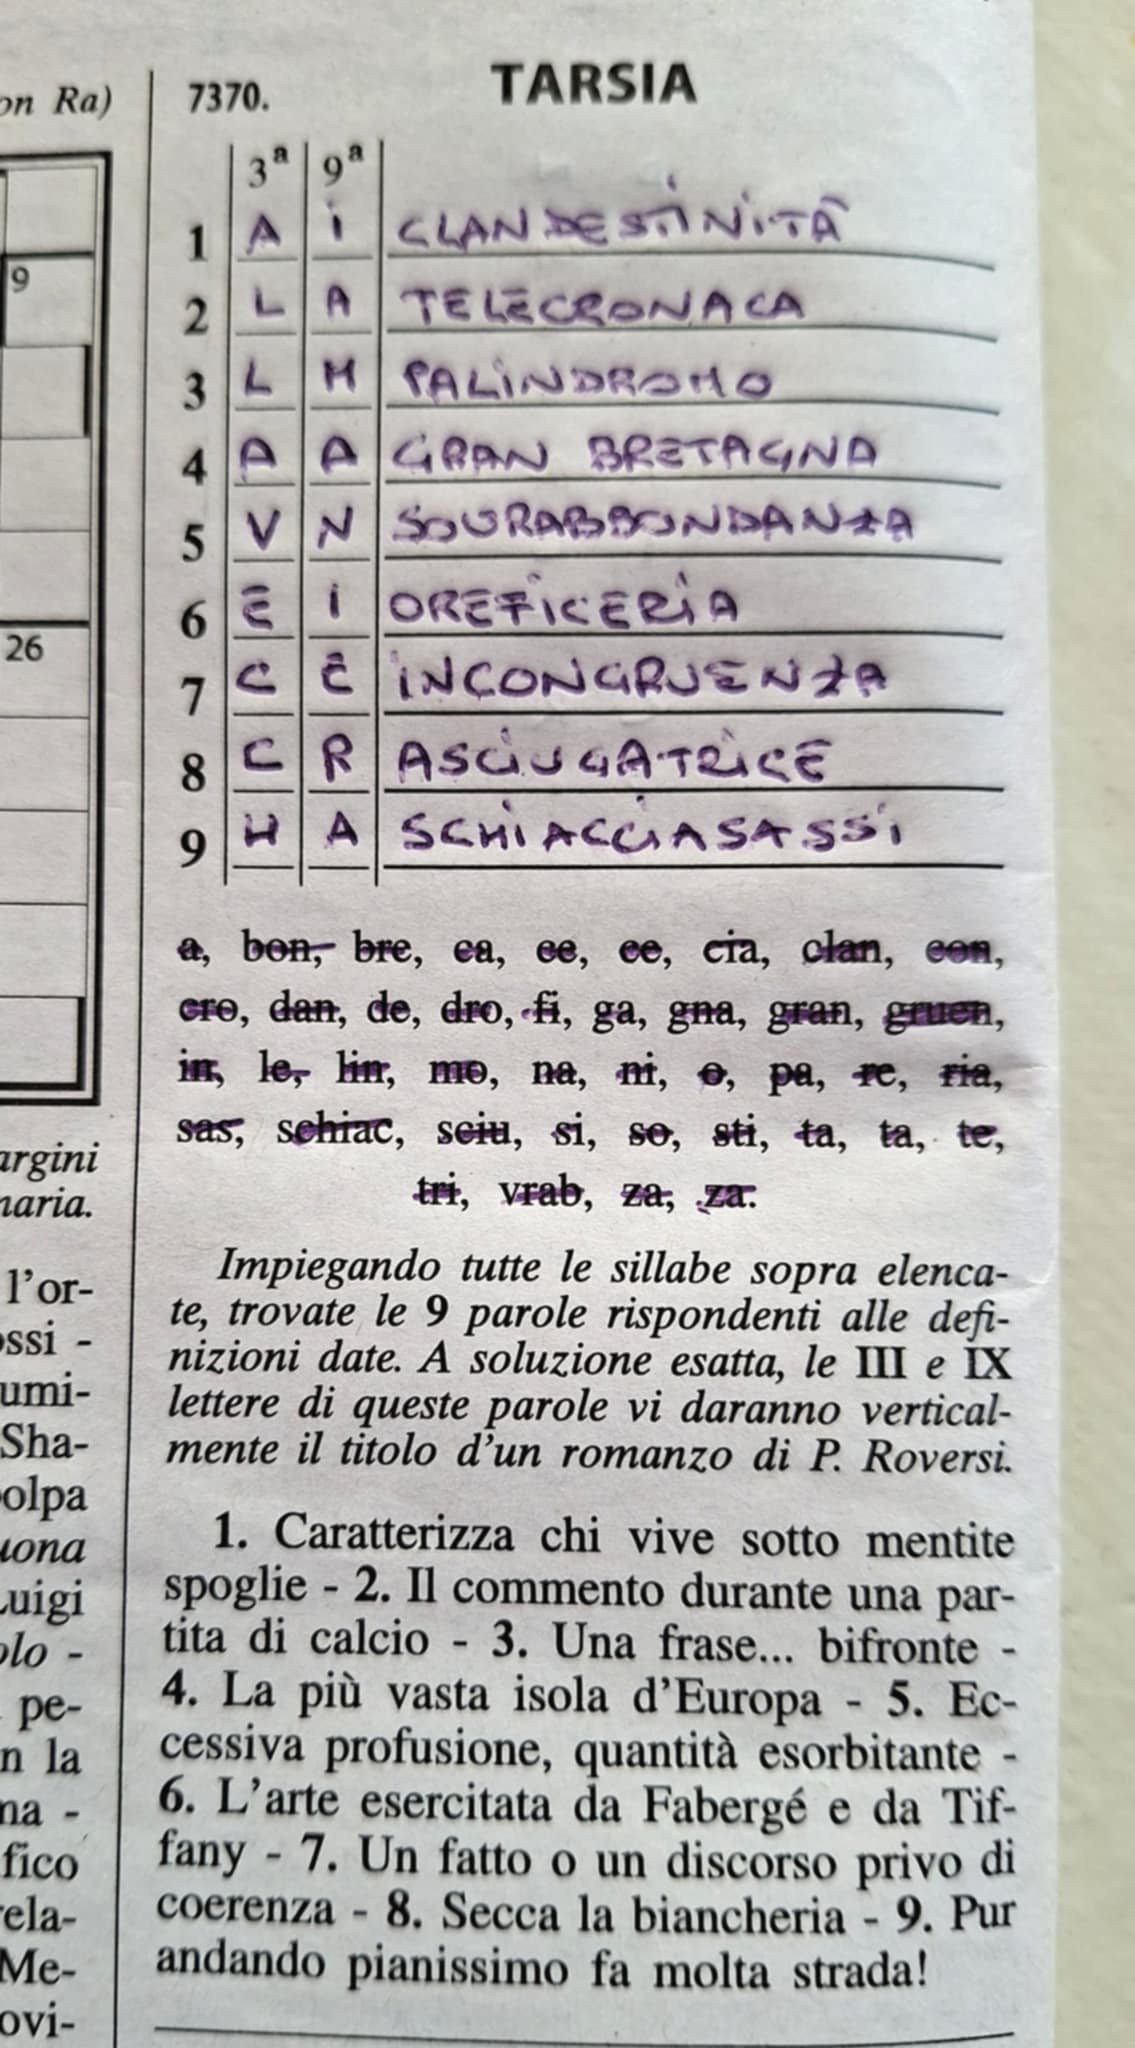 on Ra)
7370. TARSIA
3ª 9ª
1 A I CLANDESTINITÀ
2 L A TELECRONACA
3 L M PALINDROMO
4 A A GRAN BRETAGNA
5 V N SOVRABBONDANZA
6 E I OREFICERIA
7 C E INCONGRUENZA
8 C R ASCIUGATRICE
9 H A SCHIACCIASASSI
9
26
a, bon, bre, ca, ce, ce, cia, clan, con,
cro, dan, de, dro, fi, ga, gna, gran, gruen,
in, le, lin, mo, na, ni, o, pa, re, ria,
sas, schiac, sciu, si, so, sti, ta, ta, te,
tri, vrab, za, za.
Impiegando tutte le sillabe sopra elenca-
te, trovate le 9 parole rispondenti alle defi-
nizioni date. A soluzione esatta, le III e IX
lettere di queste parole vi daranno vertical-
mente il titolo d'un romanzo di P. Roversi.
1. Caratterizza chi vive sotto mentite
spoglie - 2. Il commento durante una par-
tita di calcio - 3. Una frase... bifronte -
4. La più vasta isola d'Europa - 5. Ec-
cessiva profusione, quantità esorbitante -
6. L'arte esercitata da Fabergé e da Tif-
fany - 7. Un fatto o un discorso privo di
coerenza - 8. Secca la biancheria - 9. Pur
andando pianissimo fa molta strada!
argini
naria.
l'or-
ossi -
umi-
Sha-
olpa
uona
Luigi
olo -
pe-
n la
na -
fico
rela-
Me-
ovi-